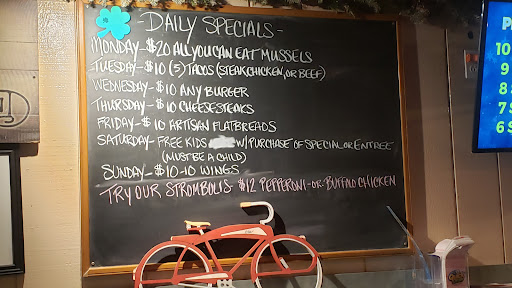 DAILY SPECIALS-
MONDAY-$20 ALL YOU CAN EAT MUSSELS
TUESDAY-$10 (5) TACOS (STEAK,CHICKEN, OR BEEF)
WEDNESDAY-$10 ANY BURGER
THURSDAY-$10 CHEESESTEAKS
FRIDAY-$10 ARTISAN FLATBREADS
SATURDAY-FREE KIDS W/ PURCHASE OF SPECIAL OR ENTREE
(MUST BE A CHILD)
SUNDAY-$10-10 WINGS
TRY OUR STROMBOLIS $12 PEPPERONI-OR-BUFFALO CHICKEN
10
9
8
7
6